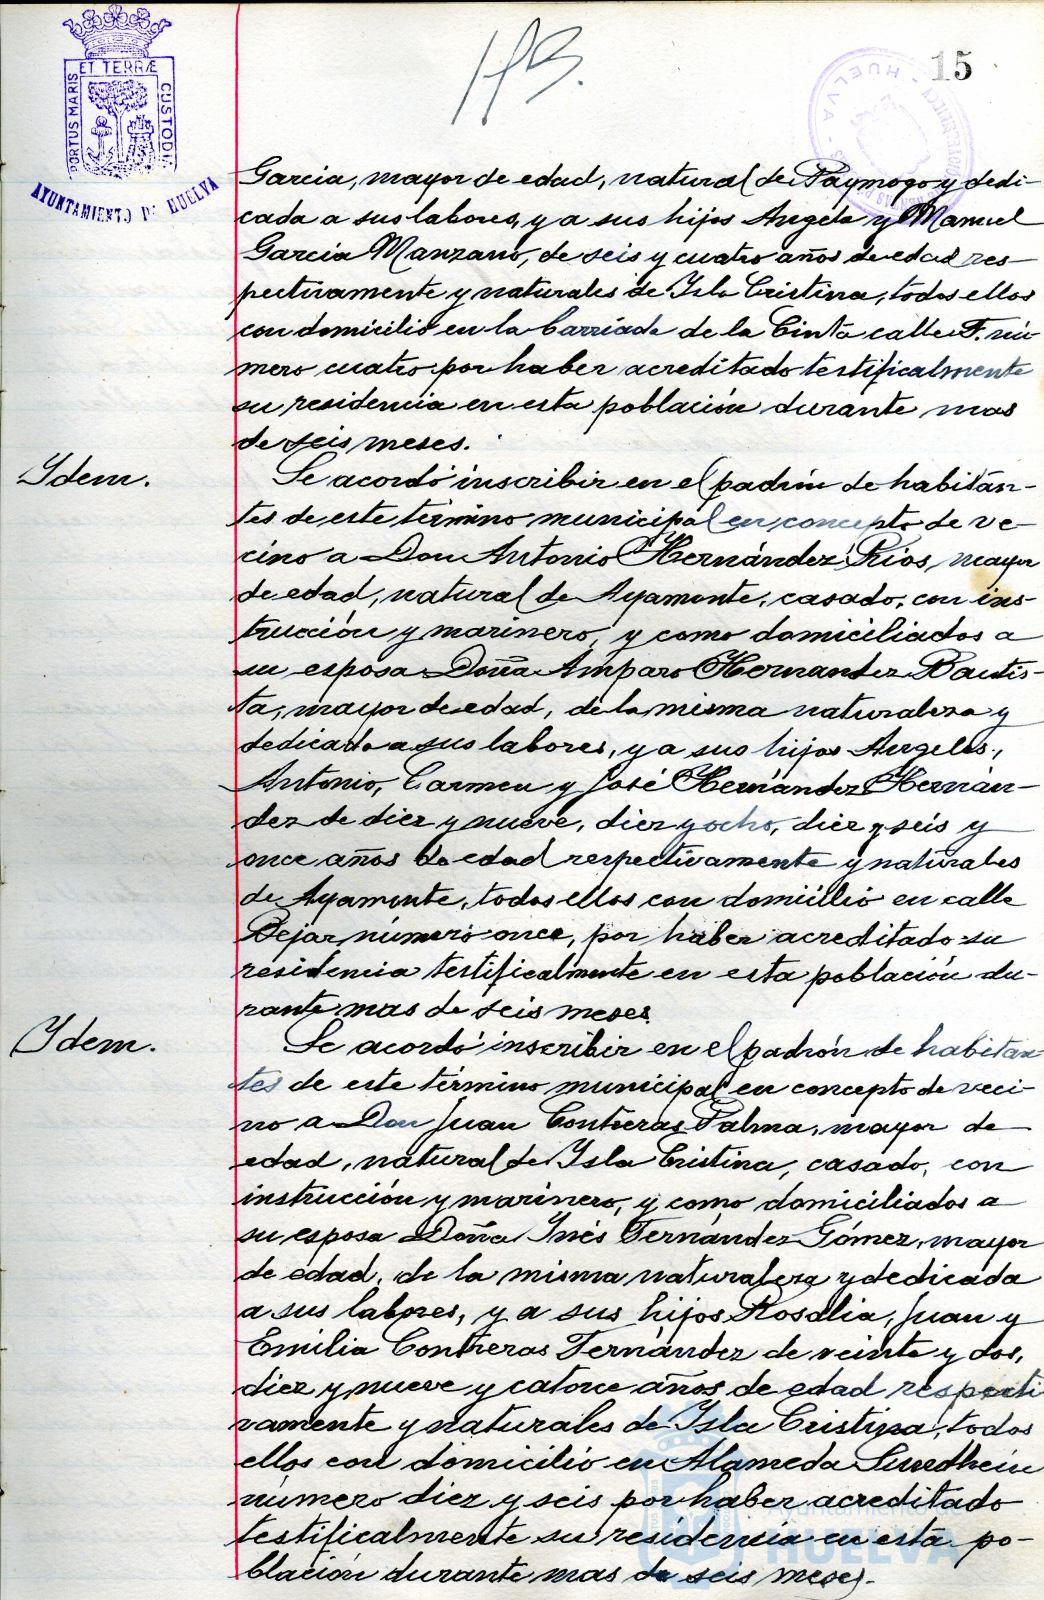 ET TERRÆ
PORTUS MARIS
CUSTODIA
AYUNTAMIENTO DE HUELVA
15
HUELVA
Garcia, mayor de edad, natural de Paymogo y dedi-
cada a sus labores, y a sus hijos Angela y Manuel
Garcia Manzano, de seis y cuatro años de edad res-
pectivamente y naturales de Isla Cristina, todos ellos
con domicilio en la barriada de la Cinta calle F. nú-
mero cuatro por haber acreditado testificalmente
su residencia en esta población durante mas
de seis meses.
Idem.
Se acordó inscribir en el padrón de habitan-
tes de este término municipal en concepto de ve-
cino a Don Antonio Hernández Rios, mayor
de edad, natural de Ayamonte, casado, con ins-
trucción y marinero, y como domiciliados a
su esposa Doña Amparo Hernandez Bautis-
ta, mayor de edad, de la misma naturaleza y
dedicada a sus labores, y a sus hijos Angeles,
Antonio, Carmen y José Hernández Hernán-
dez de diez y nueve, diez y ocho, diez y seis y
once años de edad respectivamente y naturales
de Ayamonte, todos ellos con domicilio en calle
Bejar número once, por haber acreditado su
residencia testificalmente en esta población du-
rante mas de seis meses.
Idem.
Se acordó inscribir en el padrón de habitan-
tes de este término municipal en concepto de veci-
no a Don Juan Contreras Palma, mayor de
edad, natural de Isla Cristina, casado, con
instrucción y marinero, y como domiciliados a
su esposa Doña Inés Fernández Gómez, mayor
de edad, de la misma naturaleza y dedicada
a sus labores, y a sus hijos Rosalia, Juan y
Emilia Contreras Fernández de veinte y dos,
diez y nueve y catorce años de edad respecti
vamente y naturales de Isla Cristina, todos
ellos con domicilio en Alameda Sundhein
número diez y seis por haber acreditado
testificalmente su residencia en esta po-
blación durante mas de seis meses.
Ayuntamiento de
HUELVA